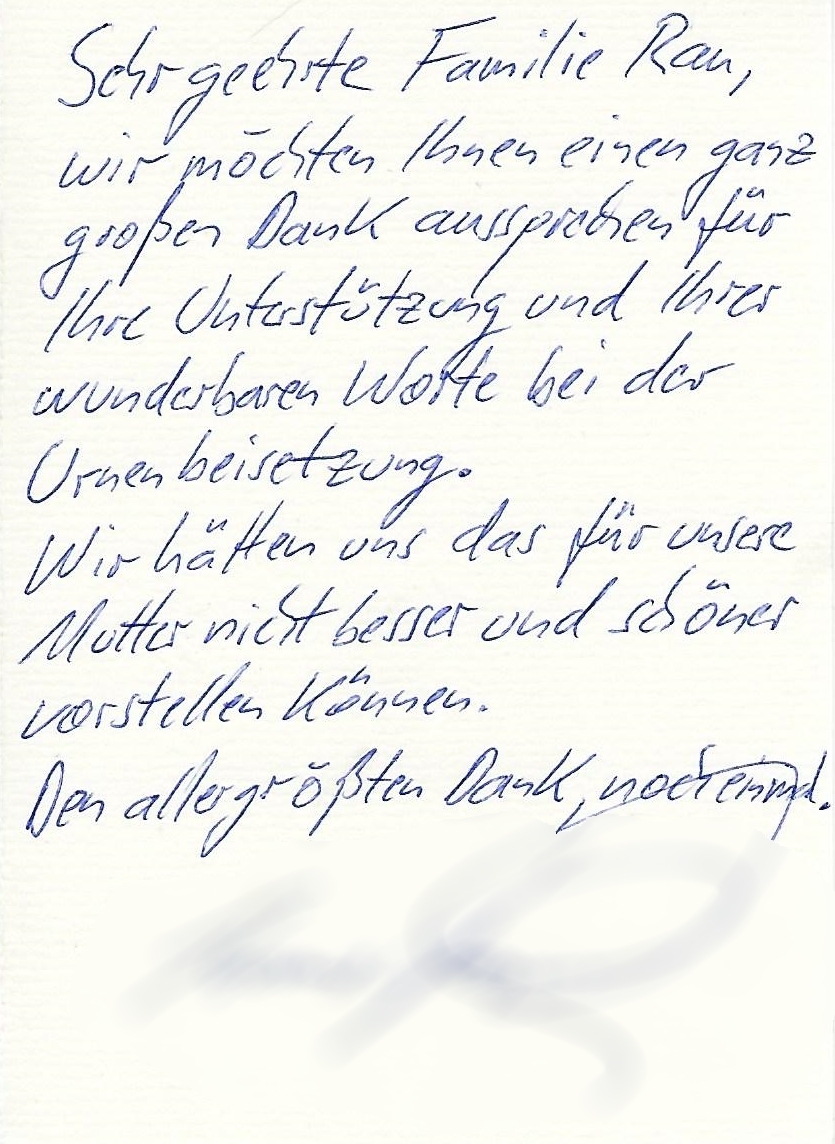 Sehr geehrte Familie Rau,
wir möchten Ihnen einen ganz
großen Dank aussprechen für
Ihre Unterstützung und Ihrer
wunderbaren Worte bei der
Urnenbeisetzung.
Wir hätten uns das für unsere
Mutter nicht besser und schöner
vorstellen können.
Den allergrößten Dank, nocheinmal.